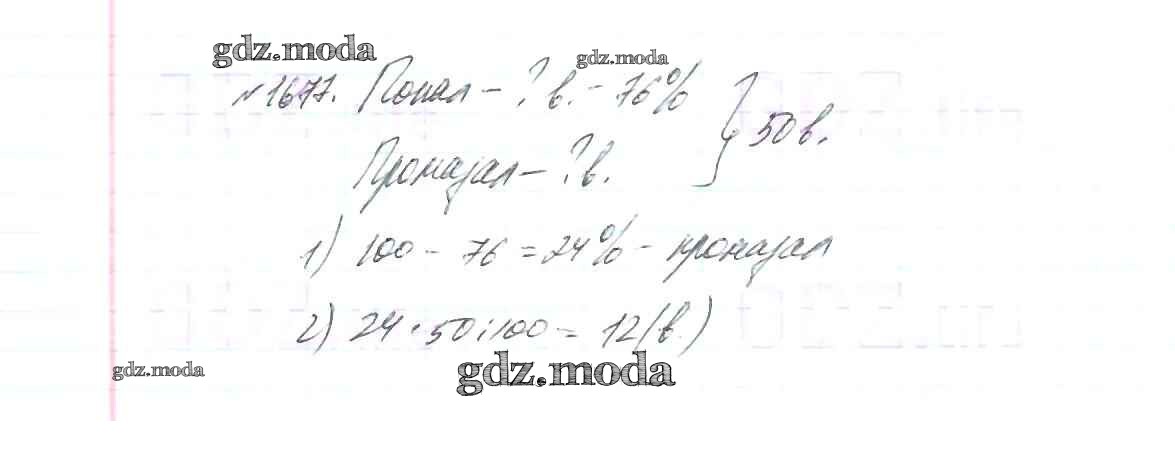 gdz.moda
gdz.moda
№1677. Попал - ? в. - 76% } 50 в.
Промазал - ? в.
1) 100 - 76 = 24% - промазал
2) 24 · 50 : 100 = 12 (в.)
gdz.moda
gdz.moda